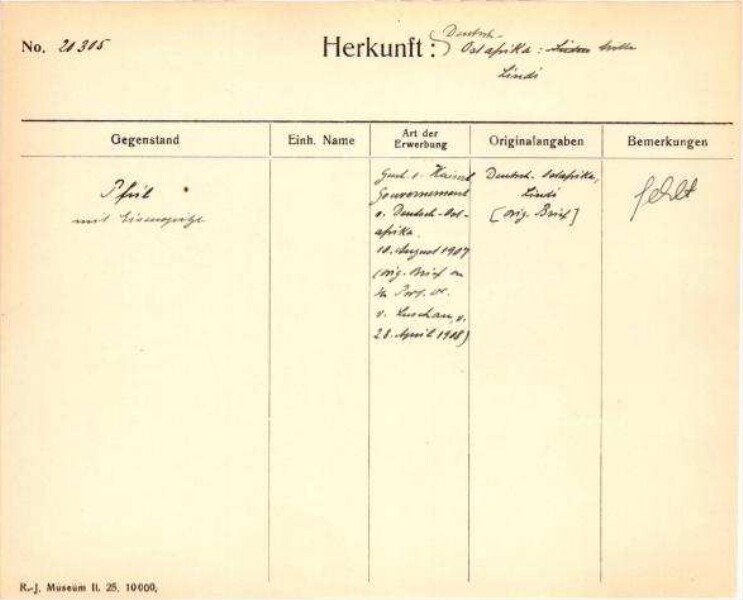 No. 20305
Herkunft: Deutsch-
Ostafrika:
Lindi
Gegenstand
Einh. Name
Art der
Erwerbung
Originalangaben
Bemerkungen
Pfeil
mit Eisenspitze
v. Kaiserl
Gouvernement
v. Deutsch-Ost-
afrika.
10. August 1907
(orig. Brief an
v. Luschan, v.
28. April 1908)
Deutsch. Ostafrika,
Lindi
[orig. Brief]
fehlt
R.-J. Museum II. 25. 10000,